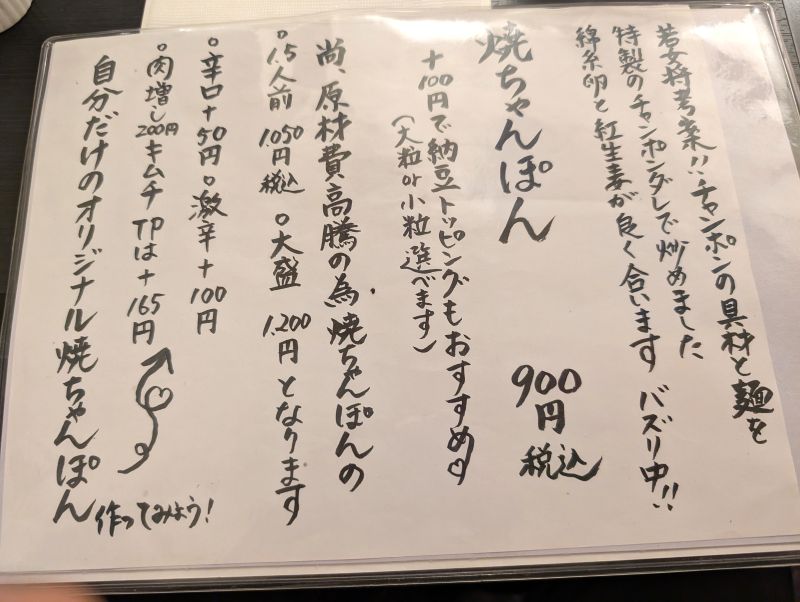 若女将考案!!チャンポンの具材と麺を
特製のチャンポンダレで炒めました
綿糸卵と紅生姜が良く合います バズり中!!
焼ちゃんぽん 900円 税込
+100円で納豆トッピングもおすすめ♡
(大粒or小粒選べます)
尚、原材費高騰の為焼ちゃんぽんの
○1.5人前 1.050円税込 ○大盛 1.200円となります
○辛口+50円 ○激辛+100円
○肉増し200円 キムチTPは+165円
自分だけのオリジナル焼ちゃんぽん
作ってみよう!